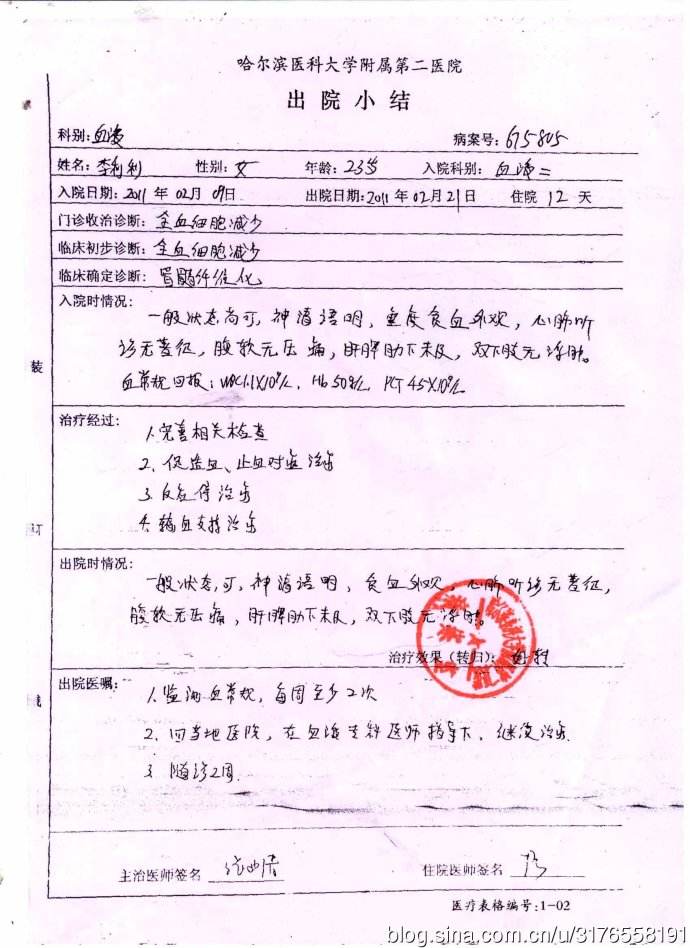 哈尔滨医科大学附属第二医院
出院小结
科别:血液 病案号:675805
姓名:李利利 性别:女 年龄:23岁 入院科别:血液二
入院日期:2011年02月09日 出院日期:2011年02月21日 住院12天
门诊收治诊断:全血细胞减少
临床初步诊断:全血细胞减少
临床确定诊断:骨髓纤维化
入院时情况:
一般状态尚可,神清语明,重度贫血外观,心肺听
诊无著征,腹软无压痛,肝脾肋下未及,双下肢无浮肿。
血常规回报:WBC1.1X10⁹/L. Hb 50g/L PLT 45X10⁹/L
治疗经过:
1.完善相关检查
2、促造血、止血对症治疗
3.反应停治疗
4.输血支持治疗
出院时情况:
一般状态可,神清语明,贫血外观,心肺听诊无著征,
腹软无压痛,肝脾肋下未及,双下肢无浮肿。
治疗效果(转归):好转
出院医嘱:
1.监测血常规,每周至少2次
2、回当地医院,在血液专科医师指导下,继续治疗.
3.随诊2周.
主治医师签名
住院医师签名
医疗表格编号:1-02
装
订
线
blog.sina.com.cn/u/3176558191